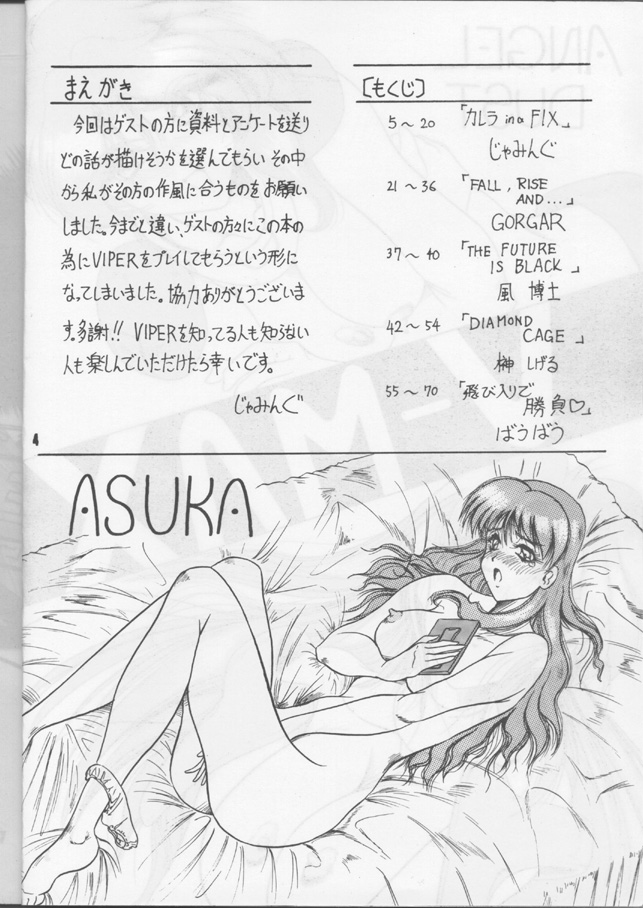 まえがき
今回はゲストの方に資料とアンケートを送り
どの話が描けそうかを選んでもらい その中
から私がその方の作風に合うものをお願い
しました。今までと違い、ゲストの方々にこの本の
為にVIPERをプレイしてもらうという形に
なってしまいました。協力ありがとうございま
す。多謝!! VIPERを知ってる人も知らない
人も楽しんでいただけたら幸いです。
じゃみんぐ
[もくじ]
5〜20 「カレラ in a FIX」
じゃみんぐ
21〜36 「FALL, RISE
AND...」
GORGAR
37〜40 「THE FUTURE
IS BLACK」
風 博士
42〜54 「DIAMOND
CAGE」
榊 しげる
55〜70 「飛び入りで
勝負♡」
ばうばう
4
ASUKA
ANGEL
DUST